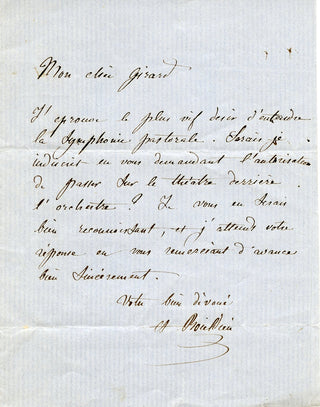 Mon cher Girard
J'éprouve le plus vif désir d'entendre
la Symphonie pastorale. Serais je
indiscret en vous demandant l'autorisation
de passer sur le théâtre derrière
l'orchestre ? Je vous en serais
bien reconnaissant, et j'attends votre
réponse en vous remerciant d'avance
bien sincèrement.
Votre bien dévoué
A Boieldieu